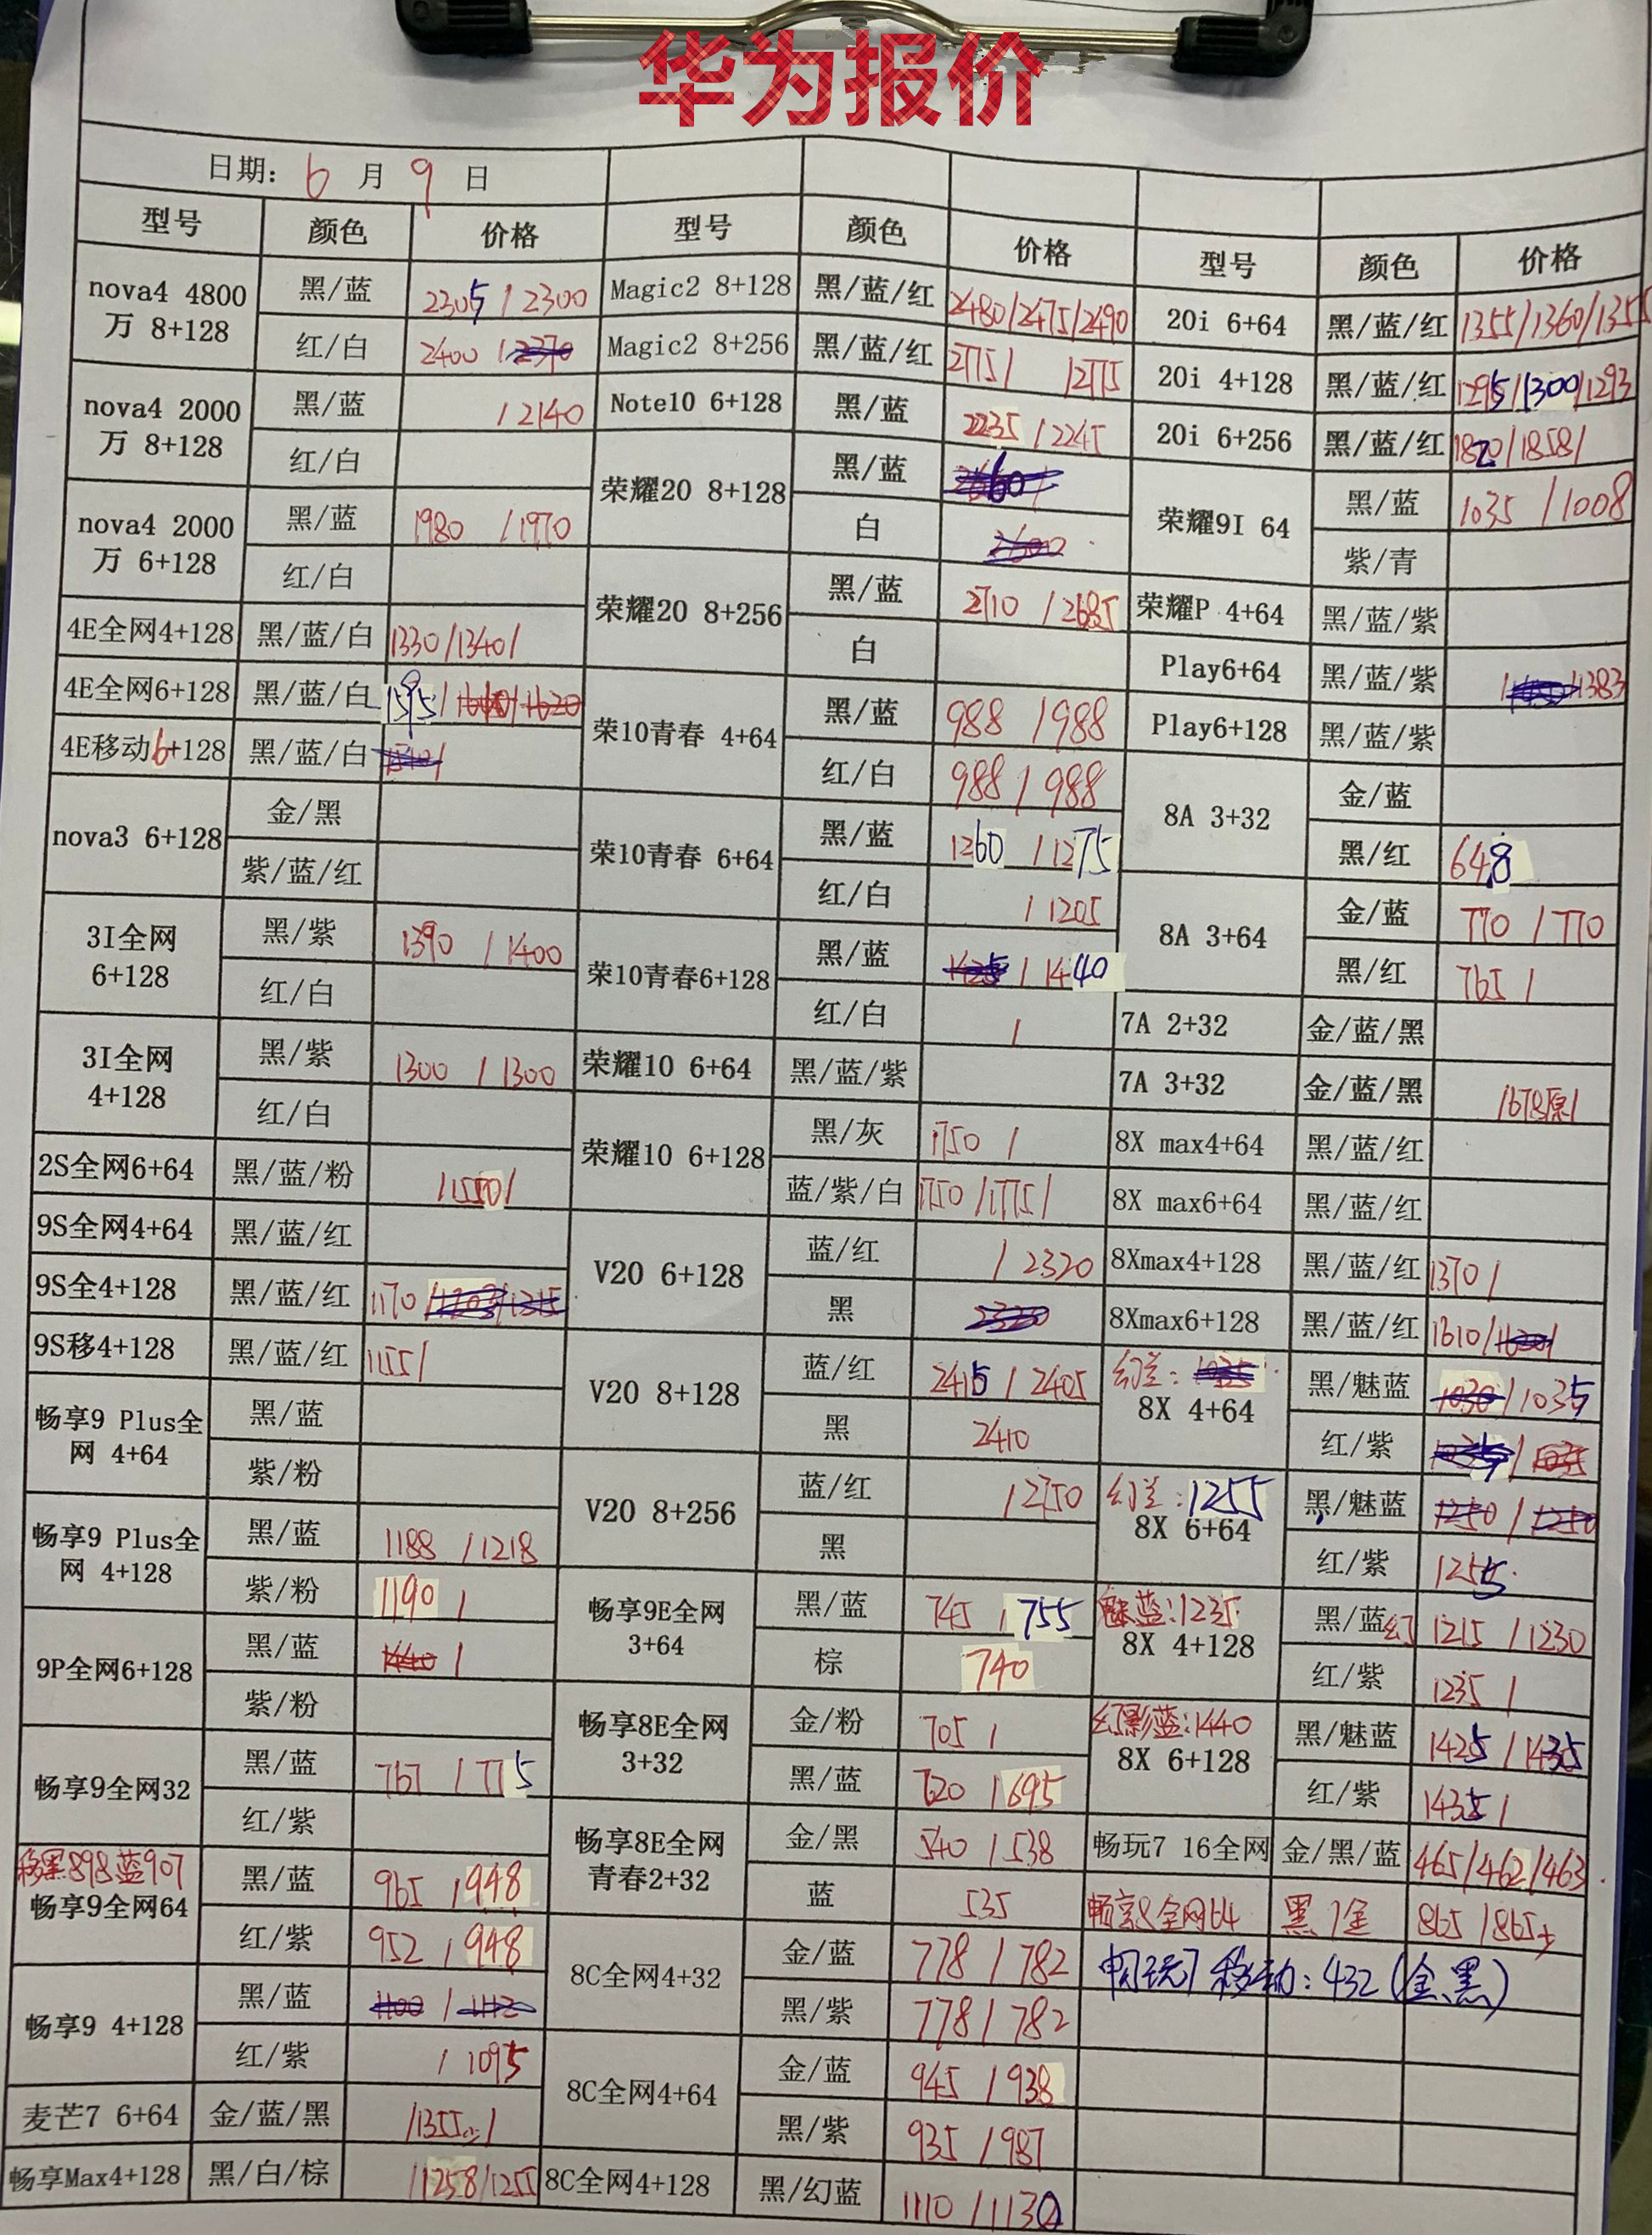 华为报价
日期: 6 月 9 日
型号 颜色 价格 型号 颜色 价格 型号 颜色 价格
nova4 4800万 8+128 黑/蓝 2305 / 2300
红/白 2400 / 2370
nova4 2000万 8+128 黑/蓝 / 2140
红/白
nova4 2000万 6+128 黑/蓝 1980 / 1970
红/白
4E全网4+128 黑/蓝/白 1330/1340/
4E全网6+128 黑/蓝/白 1595/
4E移动6+128 黑/蓝/白
nova3 6+128 金/黑
紫/蓝/红
3I全网 6+128 黑/紫 1390 / 1400
红/白
3I全网 4+128 黑/紫 1300 / 1300
红/白
2S全网6+64 黑/蓝/粉
9S全网4+64 黑/蓝/红
9S全4+128 黑/蓝/红 1170
9S移4+128 黑/蓝/红 1155/
畅享9 Plus全网 4+64 黑/蓝
紫/粉
畅享9 Plus全网 4+128 黑/蓝 1188 / 1218
紫/粉 1190 /
9P全网6+128 黑/蓝 1440 /
紫/粉
畅享9全网32 黑/蓝 767 / 775
红/紫
移黑898蓝907
畅享9全网64 黑/蓝 965 / 948
红/紫 952 / 948
畅享9 4+128 黑/蓝 1100 / 1112
红/紫 / 1095
麦芒7 6+64 金/蓝/黑 /1355
畅享Max4+128 黑/白/棕 /1258/1255
Magic2 8+128 黑/蓝/红 2480/2475/2490
Magic2 8+256 黑/蓝/红 2775/ /2775
Note10 6+128 黑/蓝 2235 / 2245
荣耀20 8+128 黑/蓝
白
荣耀20 8+256 黑/蓝 2710 / 2685
白
荣10青春 4+64 黑/蓝 988 / 988
红/白 988 / 988
荣10青春 6+64 黑/蓝 1260 / 1275
红/白 / 1205
荣10青春6+128 黑/蓝 1425 / 1440
红/白 /
荣耀10 6+64 黑/蓝/紫
荣耀10 6+128 黑/灰 1750 /
蓝/紫/白 1750 /1775/
V20 6+128 蓝/红 / 2320
黑 2320
V20 8+128 蓝/红 2415 / 2405
黑 2410
V20 8+256 蓝/红 / 2750
黑
畅享9E全网 3+64 黑/蓝 745 / 755
棕 740
畅享8E全网 3+32 金/粉 705 /
黑/蓝 720 / 695
畅享8E全网 青春2+32 金/黑 540 / 538
蓝 535
8C全网4+32 金/蓝 778 / 782
黑/紫 778 / 782
8C全网4+64 金/蓝 945 / 938
黑/紫 935 / 987
8C全网4+128 黑/幻蓝 1110 / 1130
20i 6+64 黑/蓝/红 1355/1360/1355
20i 4+128 黑/蓝/红 1295/1300/1293
20i 6+256 黑/蓝/红 1820/1858/
荣耀9I 64 黑/蓝 1035 / 1008
紫/青
荣耀P 4+64 黑/蓝/紫
Play6+64 黑/蓝/紫 1383
Play6+128 黑/蓝/紫
8A 3+32 金/蓝
黑/红 648
8A 3+64 金/蓝 770 / 770
黑/红 765 /
7A 2+32 金/蓝/黑
7A 3+32 金/蓝/黑 /678原/
8X max4+64 黑/蓝/红
8X max6+64 黑/蓝/红
8Xmax4+128 黑/蓝/红 1370 /
8Xmax6+128 黑/蓝/红 1610/
幻兰: 1035
8X 4+64 黑/魅蓝 1030 / 1035
红/紫
幻兰: 1255
8X 6+64 黑/魅蓝 1250 / 1250
红/紫 1255
魅蓝:1235
8X 4+128 黑/蓝幻 1215 / 1230
红/紫 1235 /
幻影蓝:1440
8X 6+128 黑/魅蓝 1425 / 1435
红/紫 1435 /
畅玩7 16全网 金/黑/蓝 465/462/463
畅享8全网64 黑/金 865 / 865
畅玩7 移动: 432 (金黑)